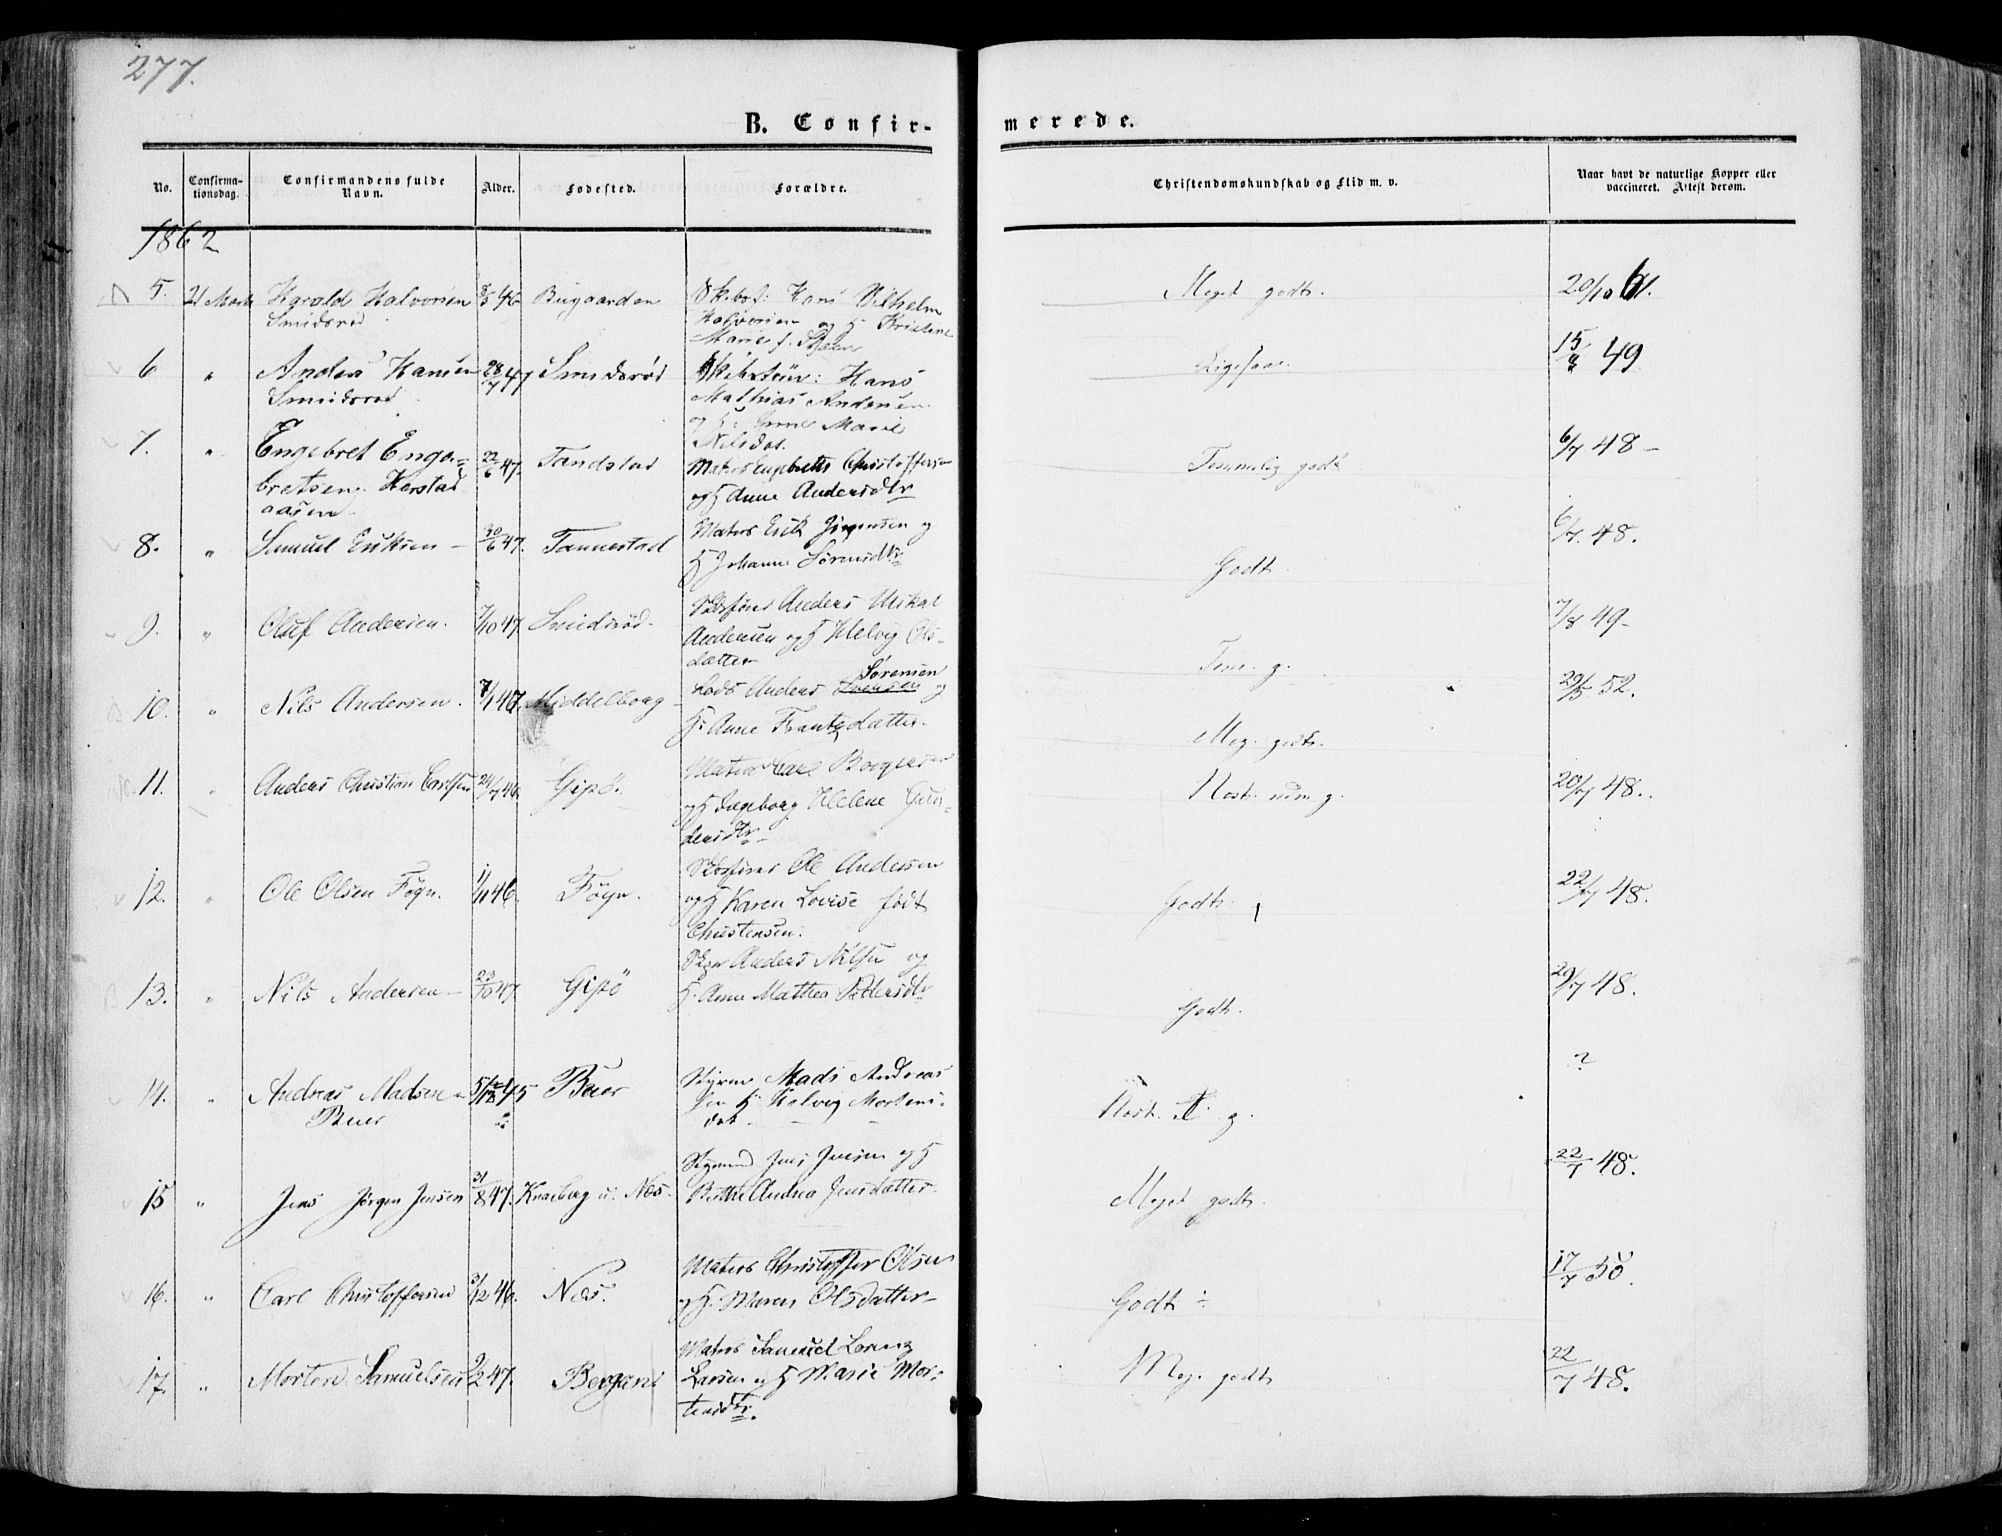 277.
B. Confir-
merede.
No.
Confirma-
tionsdag.
Confirmandens fulde
Navn.
Alder.
Fødested.
Forældre.
Christendomskundskab og Flid m. v.
Naar havt de naturlige Kopper eller
vaccineret. Attest derom.
1862
5. 21 Marts Harald Halvorsen 46 Bugaarden Hans Vilhelm Meget godt. 20/10 61.
Smidsrød Halvorsen og H Kristine
Marie f.
6 " Anders Hansen 28/7 47 Smidsrød : Hans Ligesaa. 15/8 49.
Smidsrød Mathias Andersen
og H: Marie
Nilsdat.
7. " Engebret Enge= 22/6 47. Tandstad Matros Engebreth Christoffersen Temmelig godt 6/7 48 -
bretsen. og H Anne Andersdtr
aasen
8. " Samuel Eriksen - 30/6 47. Tannestad Matros Erik Jörgensen og Godt. 6/7. 48.
H Johanne Sørensdtr
9. " Oluf Andersen. 7/10 47. Smidsrød. Anders Mikal Tem. g. 7/8 49-
Andersen og H Helvig Ols-
datter
10. " Nils Andersen. 7/1 47. Middelborg Lods Anders Sørensen og Meg. godt. 29/5 52.
H: Anne Frantzdatter.
11. " Anders Christian Carlsen 24/7 46. Gipö. Matros Carl Borgersen Nost. num g. 20/7 48.
og H Ingeborg Helene Gun-
dersdtr
12. " Ole Olsen Føyn. 1/11 46. Føyn. Ole Andersen Godt. 22/7 48.
og H Karen Lovise født
Christensen.
13. " Nils Andersen - 23/10 47 Gipö Anders Nilsen og Godt. 20/7 48.
H. Anne Mathea Pedersdtr
14. " Andreas Madsen 45 Buer Styrm Mads Andreas Nost. T. g. ?
Buer sen H: Helvig Mortens-
dat
15 " Jens Jörgen Jensen 31/8 47. Knarberg u. Nes. Styrmd Jens Jensen og H Meget godt. 22/7 48.
Berthe Andrea Jensdatter.
16. " Carl Christoffersen 3/12 46. Nes. Matros Christoffer Olsen Godt ÷ 17/7 50.
og H: Maren Olsdatter-
17. " Morten Samuelsen 9/2 47. Bergan Matros Samuel Lorenz Meg. godt 22/7 48.
Larsen og H Marie Mor-
tensdtr.